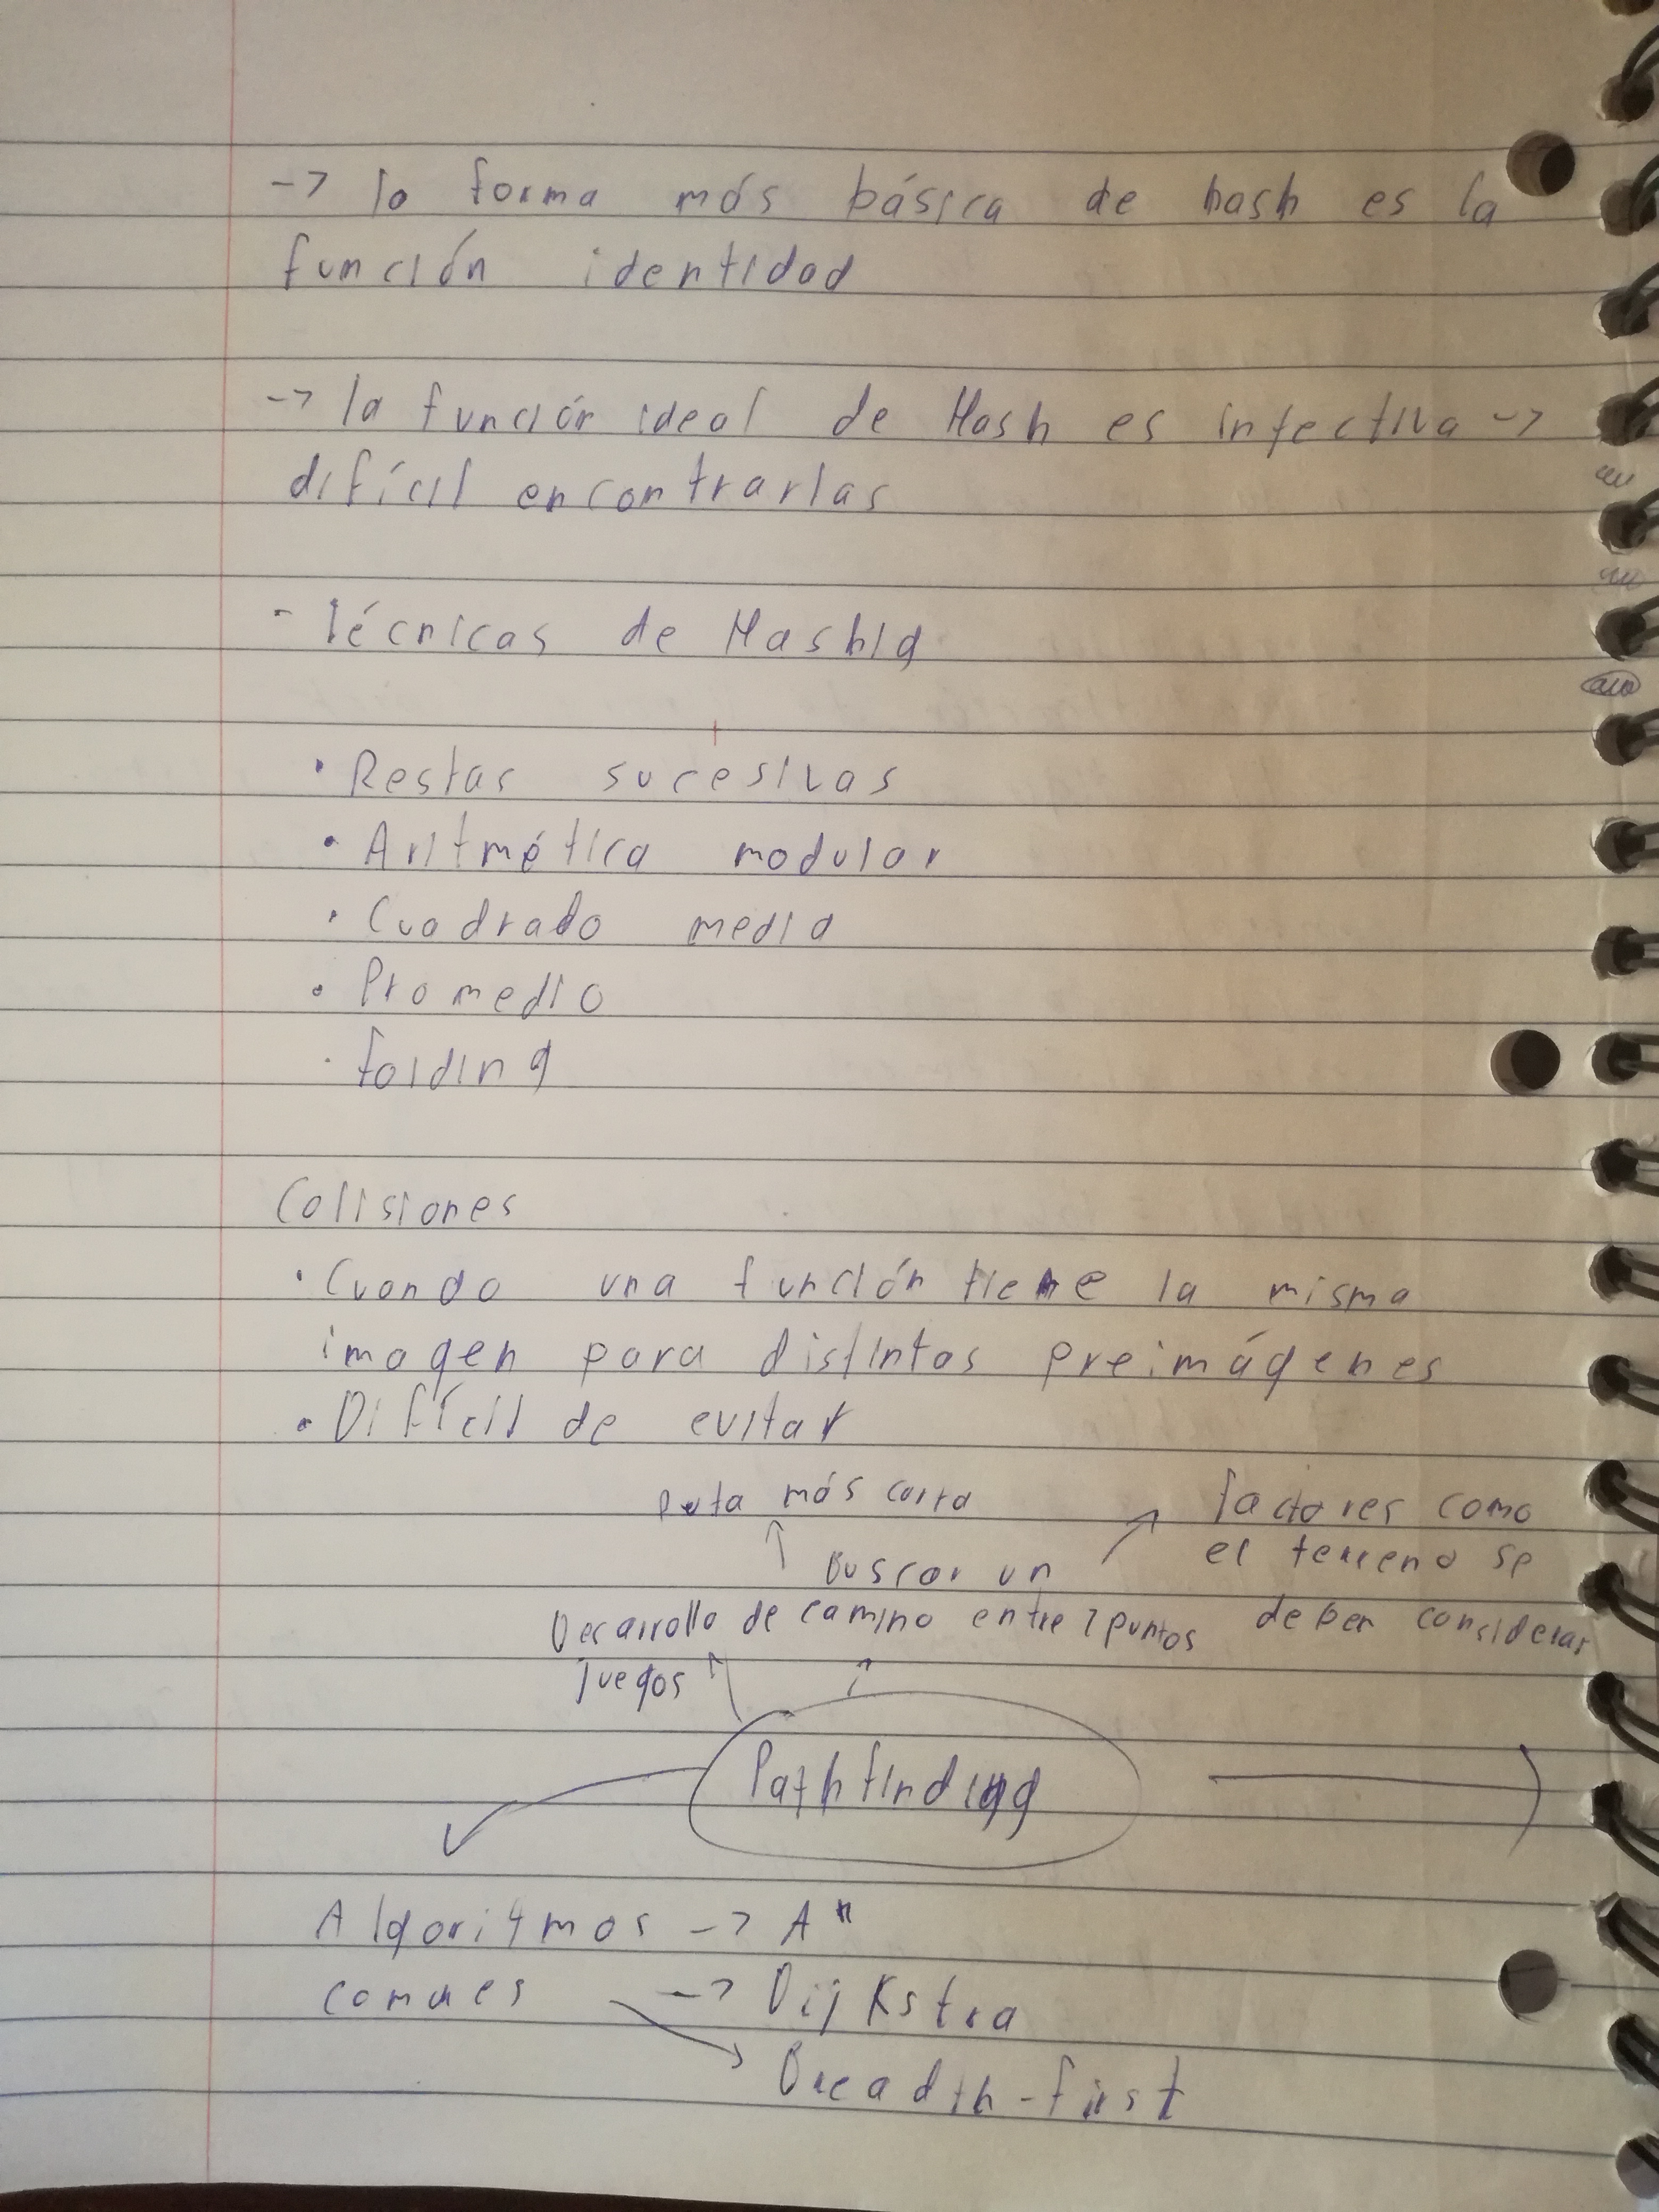 -> la forma más básica de hash es la
función identidad
-> la función ideal de Hash es inyectiva ->
difícil encontrarlas
- Técnicas de Hashig
• Restas sucesivas
• Aritmética modular
• Cuadrado media
• Promedio
• Folding
Colisiones
• Cuando una función tiene la misma
imagen para distintas preimágenes
• Difícil de evitar
Ruta más corta
factores como
el terreno se
deben considerar
Buscar un
camino entre 2 puntos
Desarrollo de
juegos
Pathfinding
Algoritmos -> A*
comunes -> Dijkstra
Breadth-first